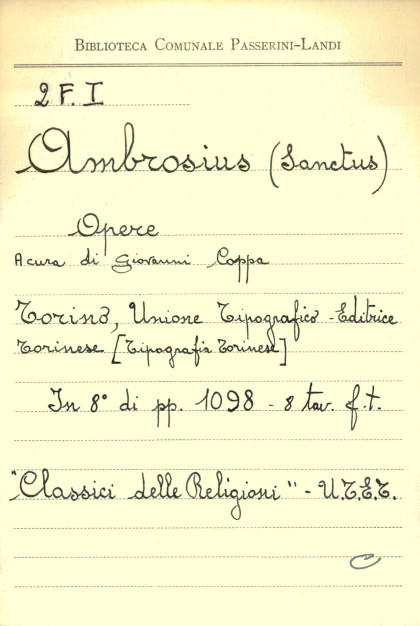 BIBLIOTECA COMUNALE PASSERINI-LANDI
2 F. I
Ambrosius (Sanctus)
Opere
A cura di Giovanni Coppa
Torino, Unione Tipografico-Editrice
Torinese [Tipografia Torinese]
In 8° di pp. 1098 - 8 tav. f.t.
"Classici delle Religioni" - U.T.E.T.
C